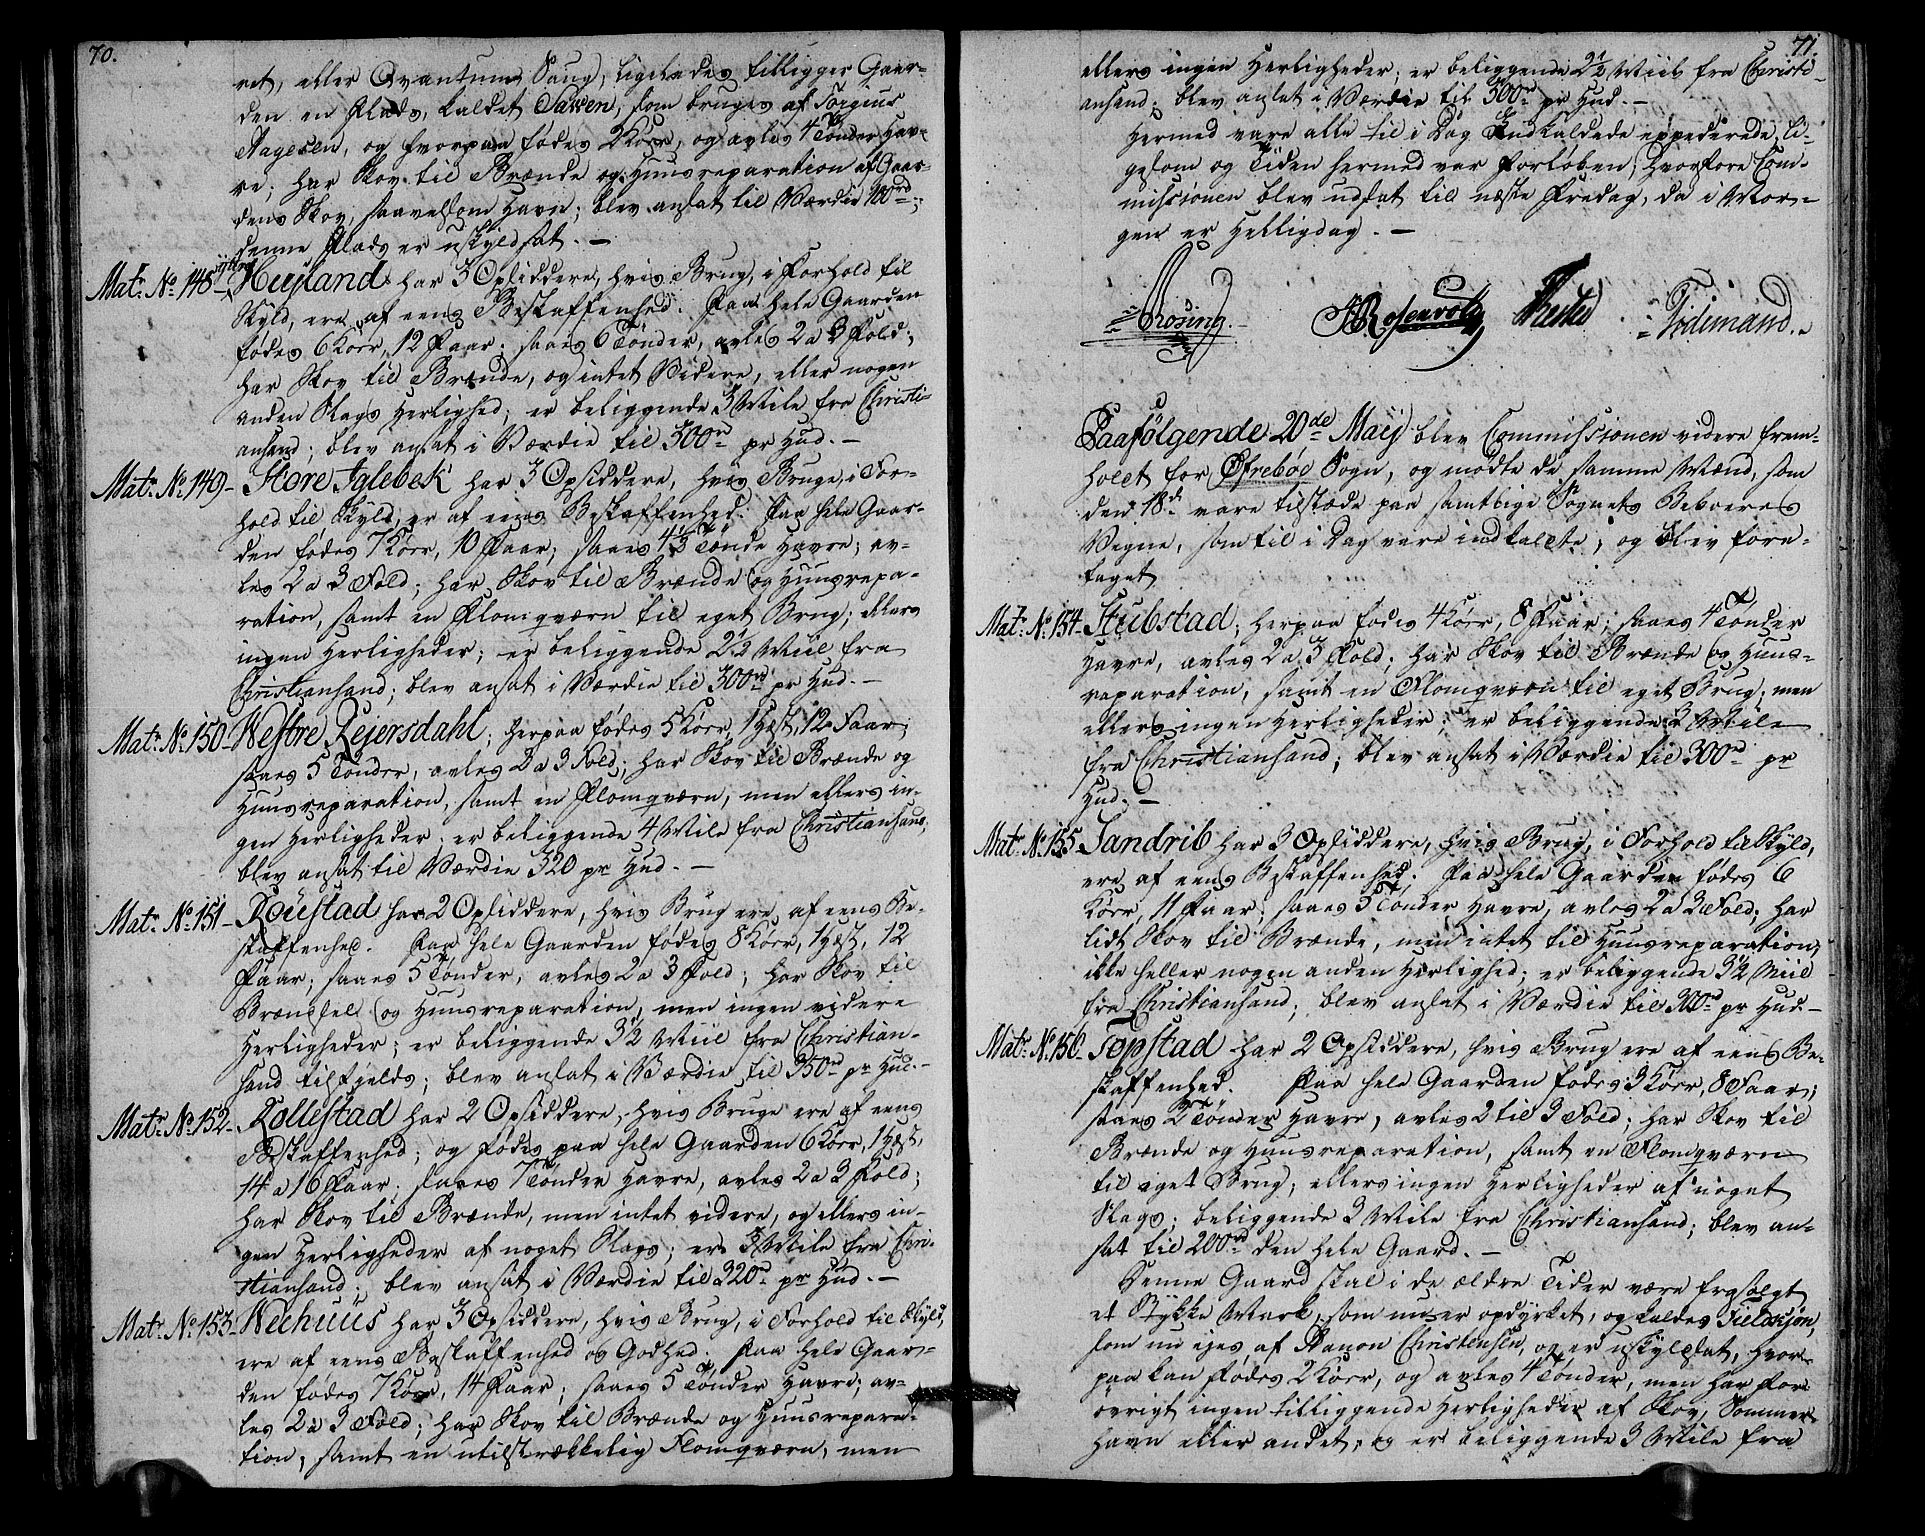 70.
ret, eller Qvantum Saug; ligeledes tilligger Gaar-
den en Plads, kaldet Sawen, som bruges af Torgius
Aagesen, og hvorpaa fødes 2 Kører, og avles 4 Tønder Hav-
re; har Skov til Brænde og Huusreparation af Gaar-
dens Skov, saavelsom Havn; blev ansat til Værdie 100rd;
denne Plads er uskyldsat. —
Matr. No. 148 - Heyland har 3 Opsiddere, hvis Brug, i Forhold til
Skyld, ere af eens Beskaffenhed. Paa hele Gaarden
fødes 6 Kører, 12 Faar; saaes 6 Tønder, avles 2 a 3 Fold;
har Skov til Brænde, og intet Videre, eller nogen
anden Slags Herlighed; er beliggende 3 Mile fra Christi-
ansand; blev ansat i Værdie til 300rd pr Hud. —
Matr. No. 149 - Store Iglebek har 3 Opsiddere, hvis Bruge, i For-
hold til Skyld, er af eens Beskaffenhed. Paa hele Gaar-
den fødes 7 Kører, 10 Faar; saaes 4½ Tønde Havre; av-
les 2 a 3 Fold; har Skov til Brænde og Huusrepa-
ration, samt en Flomqværn til eget Brug; ellers
ingen Herligheder; er beliggende 2½ Miil fra
Christiansand; blev ansat i Værdie til 300rd pr Hud. —
Matr. No. 150 - Westre Reiersdahl; herpaa fødes 5 Kører, 1 Hest, 12 Faar;
saaes 5 Tønder, avles 2 a 3 Fold; har Skov til Brænde og
Huusreparation, samt en Flomqværn, men ellers in-
gen Herligheder; er beliggende 4 Mile fra Christiansand;
blev ansat til Værdie 320 pr Hud. —
Matr. No. 151 - Røiestad har 2 Opsiddere, hvis Brug ere af eens Be-
skaffenhed. Paa hele Gaarden fødes 8 Kører, 1 Hest, 12
Faar; saaes 5 Tønder, avles 2 a 3 Fold; har Skov til
Brændsel og Huusreparation, men ingen videre
Herligheder; er beliggende 3½ Miil fra Christian-
sand tilfields; blev ansat i Værdie til 350rd pr Hud. —
Matr. No. 152 - Kollestad har 2 Opsiddere, hvis Bruge ere af eens
Beskaffenhed; og fødes paa hele Gaarden 6 Kører, 1 Hest,
14 a 16 Faar; saaes 7 Tønder Havre, avles 2 a 3 Fold;
har Skov til Brænde, men intet videre, og ellers in-
gen Herligheder af noget Slags; er 3 Mile fra Chri-
stiansand; blev ansat i Værdie til 320rd pr Hud. —
Matr. No. 153 - Wechuus har 3 Opsiddere, hvis Brug, i Forhold til Skyld,
ere af eens Beskaffenhed og Godhed. Paa hele Gaar-
den fødes 7 Kører, 14 Faar; saaes 5 Tønder Havre; av-
les 2 a 3 Fold; har Skov til Brænde og Huusrepara-
tion; samt en utilstrækkelig Flomqværn, men
71.
ellers ingen Herligheder; er beliggende 2½ Miil fra Christi-
ansand; blev ansat i Værdie til 300rd pr Hud. —
Hermed vare alle til i Dag Indkaldede expederede, li-
gesom og Tiden hermed var forløben; hvorfore Com-
missionen blev udsat til næste Fredag, da i Mor-
gen er Helligdag. —
Rosing. Rosenvold Todimand.
Paafølgende 20de Maij blev Commissionen videre frem-
holdt for Øvrebøe Sogn, og mødte de samme Mænd, som
den 18de vare tilstæde paa samtlige Sognets Beboeres
Vegne, som til i Dag vare indkaldte; og blev fore-
taget
Matr. No. 154 - Stubstad; herpaa fødes 4 Kører, 8 Faar; saaes 4 Tønder
Havre, avles 2 a 3 Fold; har Skov til Brænde og Huus-
reparation, samt en Flomqværn til eget Brug; men
ellers ingen Herligheder; er beliggende 3 Mile
fra Christiansand; blev ansat i Værdie til 300rd pr
Hud. —
Matr. No. 155 Sandrib har 3 Opsiddere, hvis Brug, i Forhold til Skyld,
ere af eens Beskaffenhed. Paa hele Gaarden fødes 6
Kører, 11 Faar; saaes 5 Tønder Havre, avles 2 a 3 Fold; har
lidt Skov til Brænde, men intet til Huusreparation,
ikke heller nogen anden Herlighed; er beliggende 3½ Miil
fra Christiansand; blev ansat i Værdie til 300rd pr Hud. —
Matr. No. 156 Topstad har 2 Opsiddere, hvis Brug ere af eens Be-
skaffenhed. Paa hele Gaarden fødes 3 Kører, 8 Faar;
saaes 2 Tønder Havre, avles 2 til 3 Fold; har Skov til
Brænde og Huusreparation, samt en Flomqværn
til eget Brug; ellers ingen Herligheder af noget
Slags; beliggende 3 Mile fra Christiansand; blev an-
sat til 200rd den hele Gaard. —
Denne Gaard skal i de ældre Tider være frasolgt
et Stykke Mark, som nu er opdyrket, og kaldes Fieldsiøn,
som nu ejes af Aanon Christensen, og er uskyldsat, hvor-
paa kan fødes 2 Kører, og avles 4 Tønder, men har for
øvrigt ingen tilliggende Herligheder af Skov, Sommer-
havn eller andet, og er beliggende 3 Mile fra